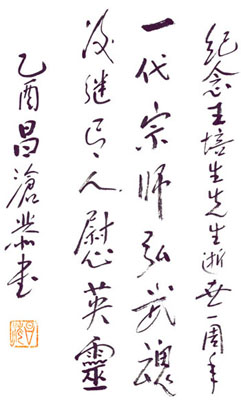 纪念王培生先生逝世一周年
一代宗师弘武魂
後继有人慰英靈
乙酉昌滄恭书